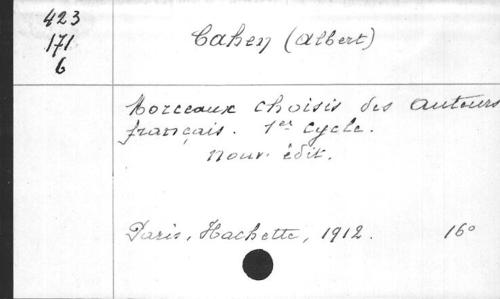 423
171
6
Cahen (Albert)
Morceaux choisis des auteurs
français. 1er cycle.
Nouv. édit.
Paris, Hachette, 1912. 16°